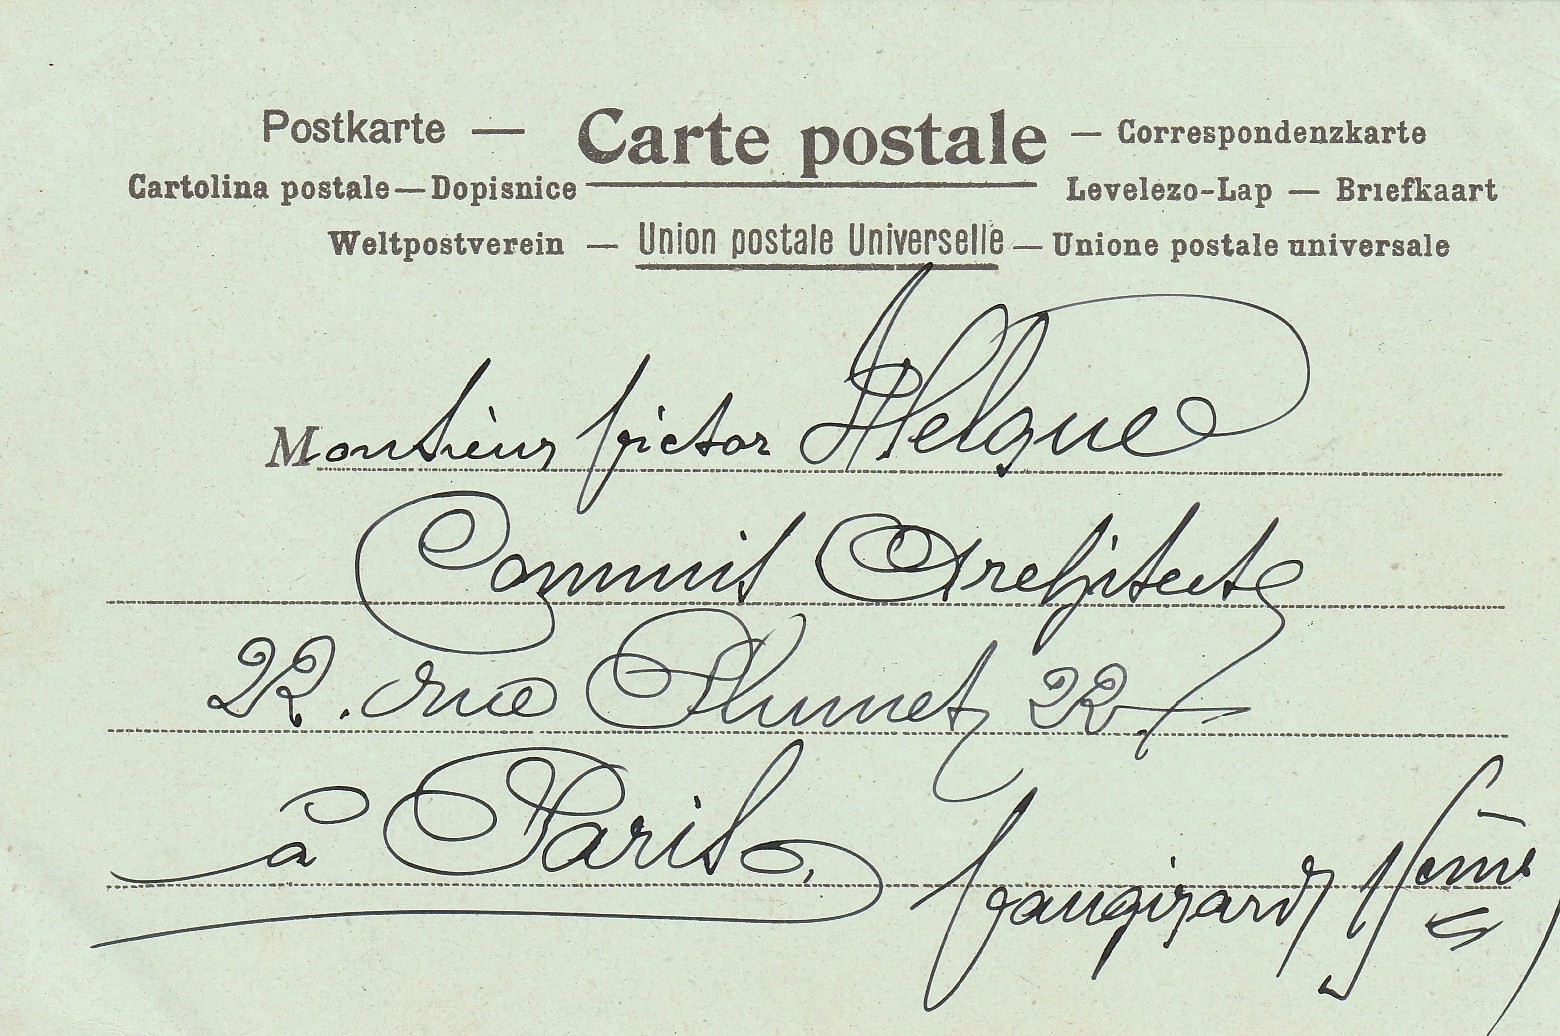 Postkarte — Carte postale — Correspondenzkarte
Cartolina postale — Dopisnice Levelezo-Lap — Briefkaart
Weltpostverein — Union postale Universelle — Unione postale universale
Monsieur Victor
Commis Architecte
22. rue Plumet 22.
à Paris, Vaugirard